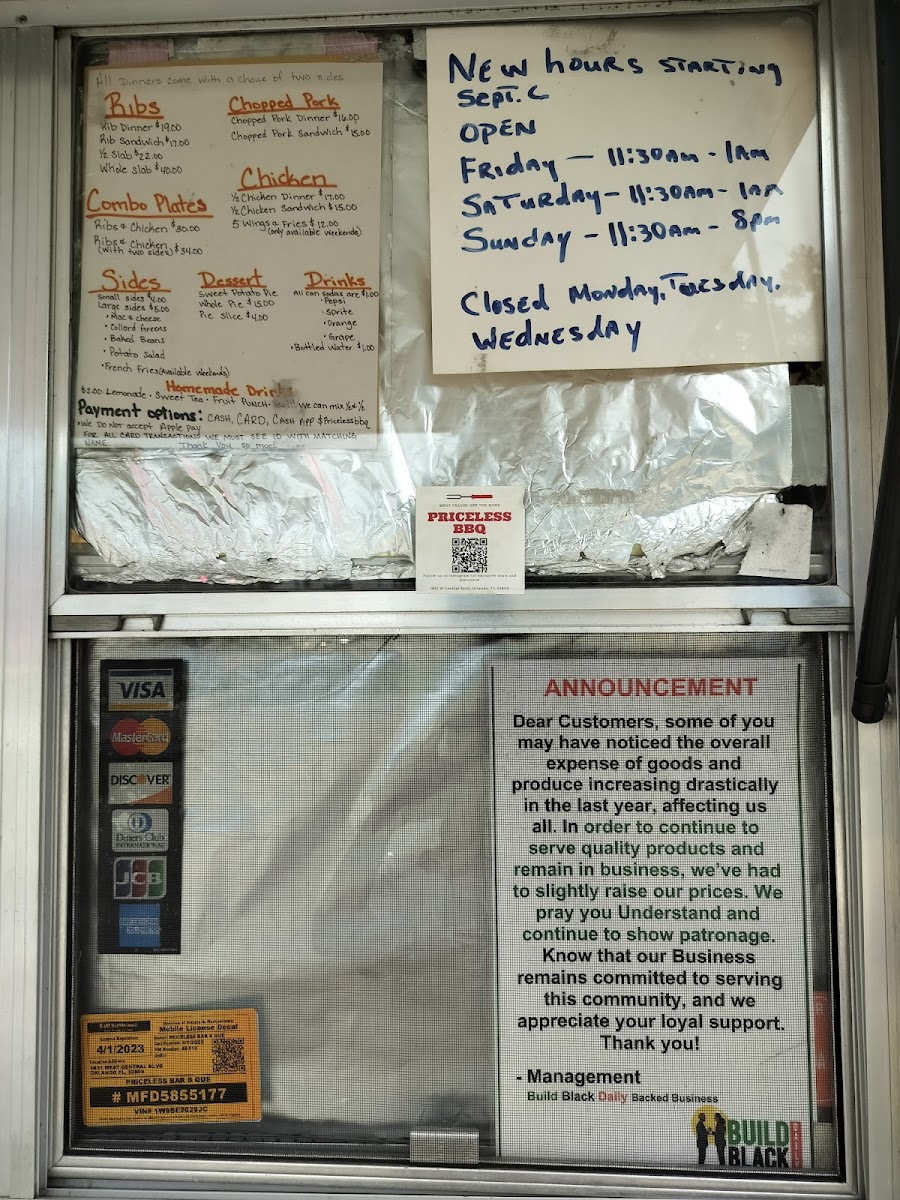 All Dinners come with a choice of two sides
Ribs
Rib Dinner $19.00
Rib Sandwich $17.00
½ Slab $22.00
Whole Slab $40.00
Chopped Pork
Chopped Pork Dinner $16.00
Chopped Pork Sandwich $15.00
Chicken
½ Chicken Dinner $17.00
½ Chicken Sandwich $15.00
5 Wings & Fries $12.00
(only available weekends)
Combo Plates
Ribs & Chicken $30.00
Ribs & Chicken
(with two sides) $34.00
Sides
Small sides $4.00
Large sides $5.00
• Mac & cheese
• Collard Greens
• Baked Beans
• Potato Salad
• French Fries (Available Weekends)
Dessert
Sweet Potato Pie
Whole Pie $15.00
Pie Slice $4.00
Drinks
All can sodas are $1.00
• Pepsi
• Sprite
• Orange
• Grape
• Bottled Water $1.00
Homemade Drinks
$2.00 Lemonade • Sweet Tea • Fruit Punch • We can mix ½ & ½
Payment options: CASH, CARD, CASH APP $Pricelessbbq
*We Do Not accept Apple Pay
FOR ALL CARD TRANSACTIONS WE MUST SEE ID WITH MATCHING
NAME. Thank You so much
NEW hOURS STARTING
SEPT.
OPEN
FRIDAY — 11:30AM - 1AM
SATURDAY — 11:30AM - 1AM
SUNDAY — 11:30AM - 8PM
CLOSED MONDAY, TUESDAY,
WEDNESDAY
MEAT FALLIN' OFF THE BONE
PRICELESS
BBQ
Follow us on Instagram for exclusive deals and
VISA
MasterCard
DISCOVER
Diners Club
INTERNATIONAL
JCB
AMERICAN
EXPRESS
ANNOUNCEMENT
Dear Customers, some of you
may have noticed the overall
expense of goods and
produce increasing drastically
in the last year, affecting us
all. In order to continue to
serve quality products and
remain in business, we've had
to slightly raise our prices. We
pray you Understand and
continue to show patronage.
Know that our Business
remains committed to serving
this community, and we
appreciate your loyal support.
Thank you!
- Management
Build Black Daily Backed Business
BUILD
BLACK
DAILY
Mobile License Decal
4/1/2023
PRICELESS BAR B QUE
# MFD5855177